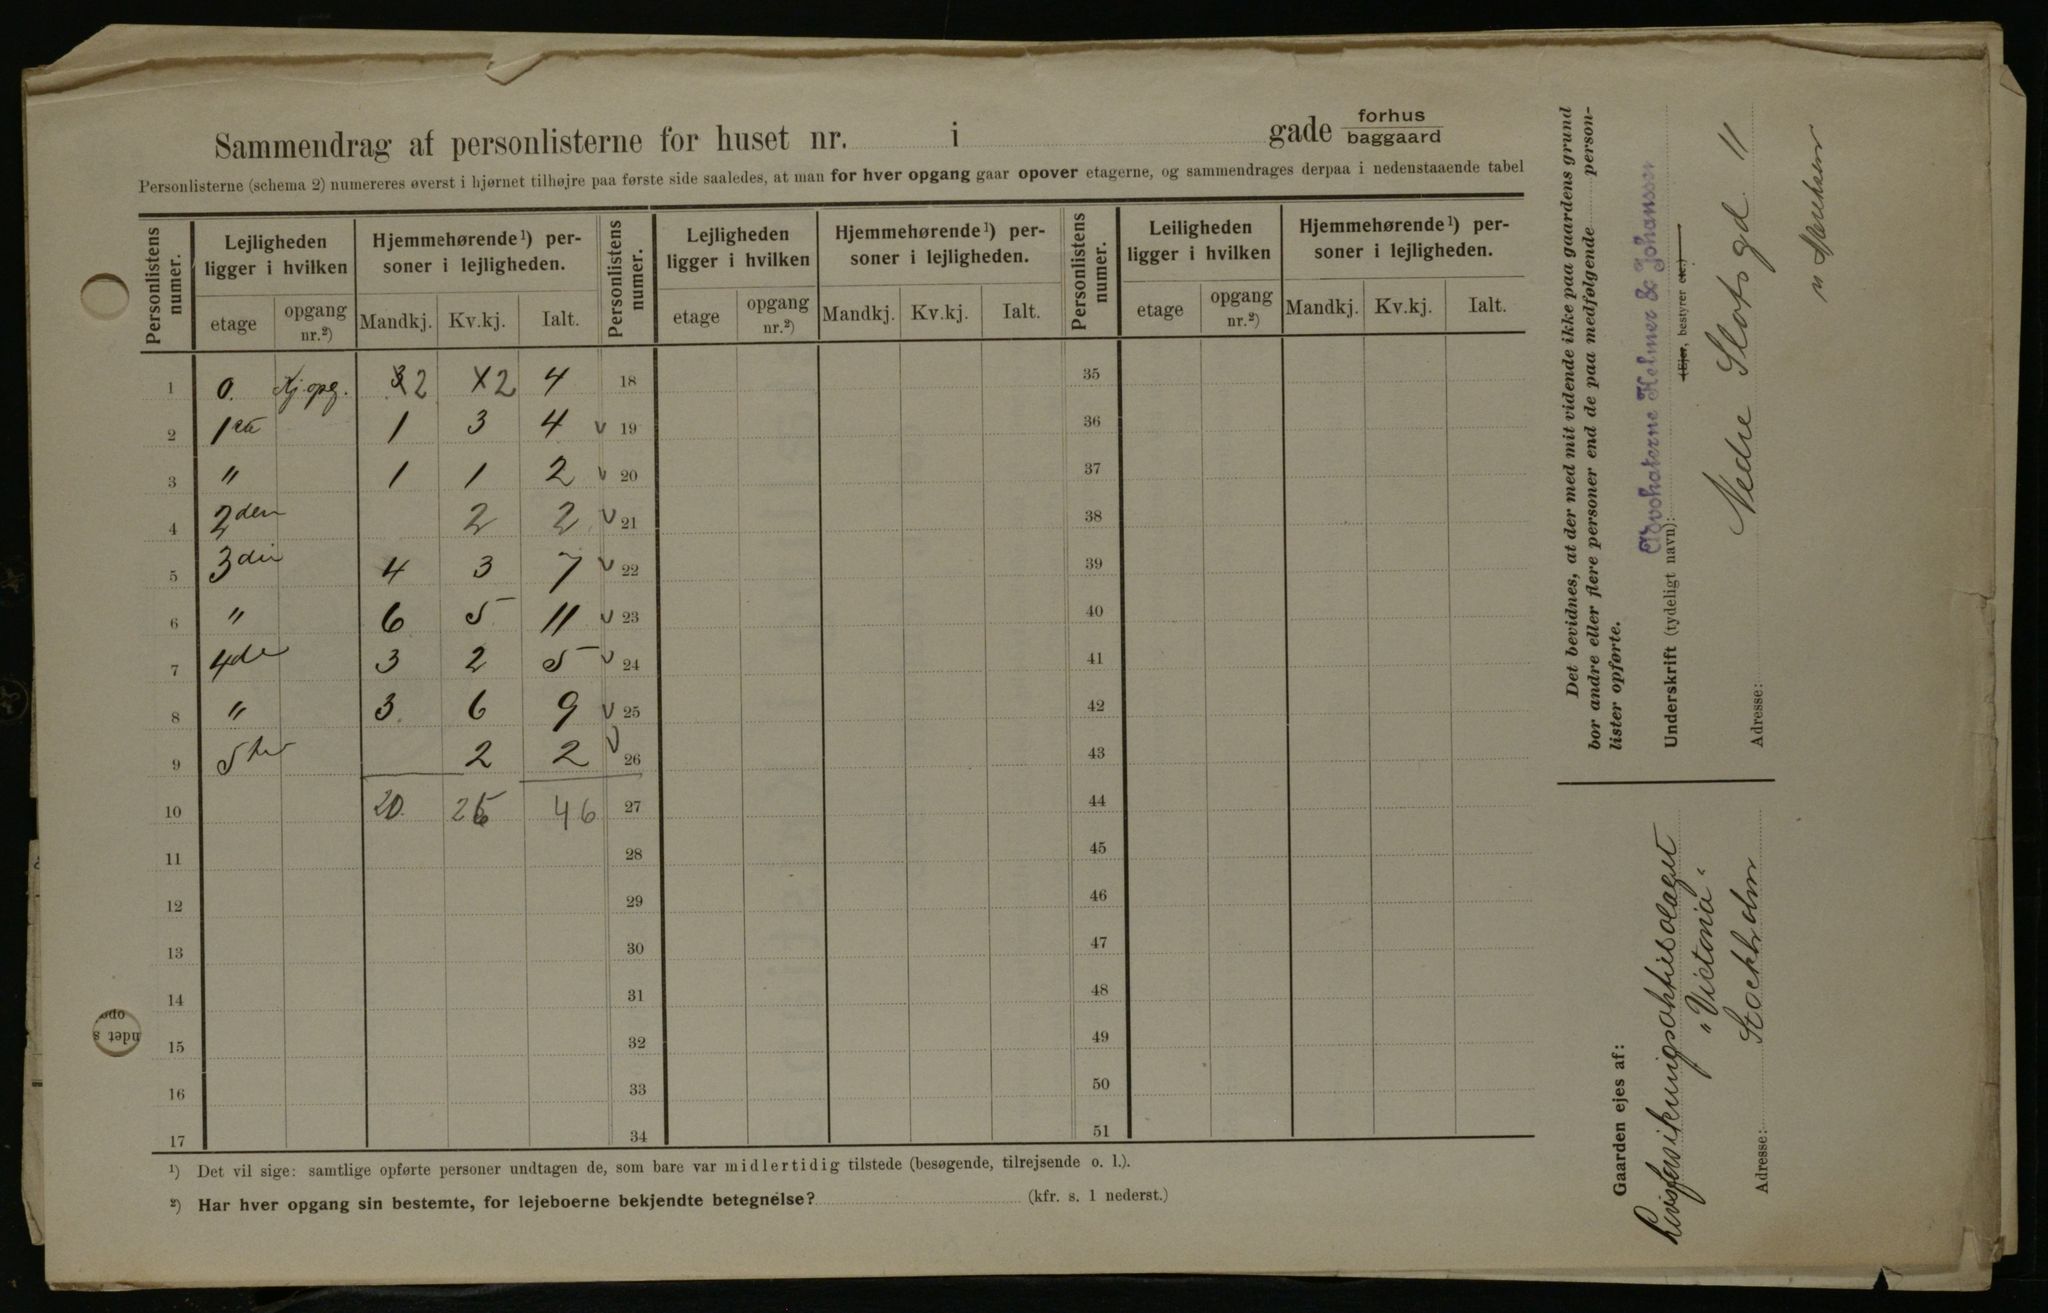 Sammendrag af personlisterne for huset nr. i gade forhus baggaard
Personlisterne (schema 2) numereres øverst i hjørnet tilhøjre paa første side saaledes, at man for hver opgang gaar opover etagerne, og sammendrages derpaa i nedenstaaende tabel
Personlistens numer. Lejligheden ligger i hvilken Hjemmehørende¹) personer i lejligheden. Personlistens numer. Lejligheden ligger i hvilken Hjemmehørende¹) personer i lejligheden. Personlistens numer. Leiligheden ligger i hvilken Hjemmehørende¹) personer i lejligheden.
etage opgang nr.²) Mandkj. Kv.kj. Ialt. etage opgang nr.²) Mandkj. Kv.kj. Ialt. etage opgang nr.²) Mandkj. Kv.kj. Ialt.
1 0. Kj. opg. 2 2 4 18 35
2 1 1 3 4 v 19 36
3 " 1 1 2 v 20 37
4 2den 2 2 v 21 38
5 3die 4 3 7 v 22 39
6 " 6 5 11 v 23 40
7 4de 3 2 5 v 24 41
8 " 3 6 9 v 25 42
9 5te 2 2 v 26 43
10 20 26 46 27 44
11 28 45
12 29 46
13 30 47
14 31 48
15 32 49
16 33 50
17 34 51
¹) Det vil sige: samtlige opførte personer undtagen de, som bare var midlertidig tilstede (besøgende, tilrejsende o. l.).
²) Har hver opgang sin bestemte, for lejeboerne bekjendte betegnelse? (kfr. s. 1 nederst.)
Det bevidnes, at der med mit vidende ikke paa gaardens grund
bor andre eller flere personer end de paa medfølgende person-
lister opførte.
Advokaterne Helmer & Johanssen
Underskrift (tydeligt navn):
(Ejer, bestyrer etc.)
Adresse: Nedre Slotsgd. 11
Gaarden ejes af:
Livsforsikringsaktiebolaget
"Victoria"
Adresse: Stockholm
opg
ndet s